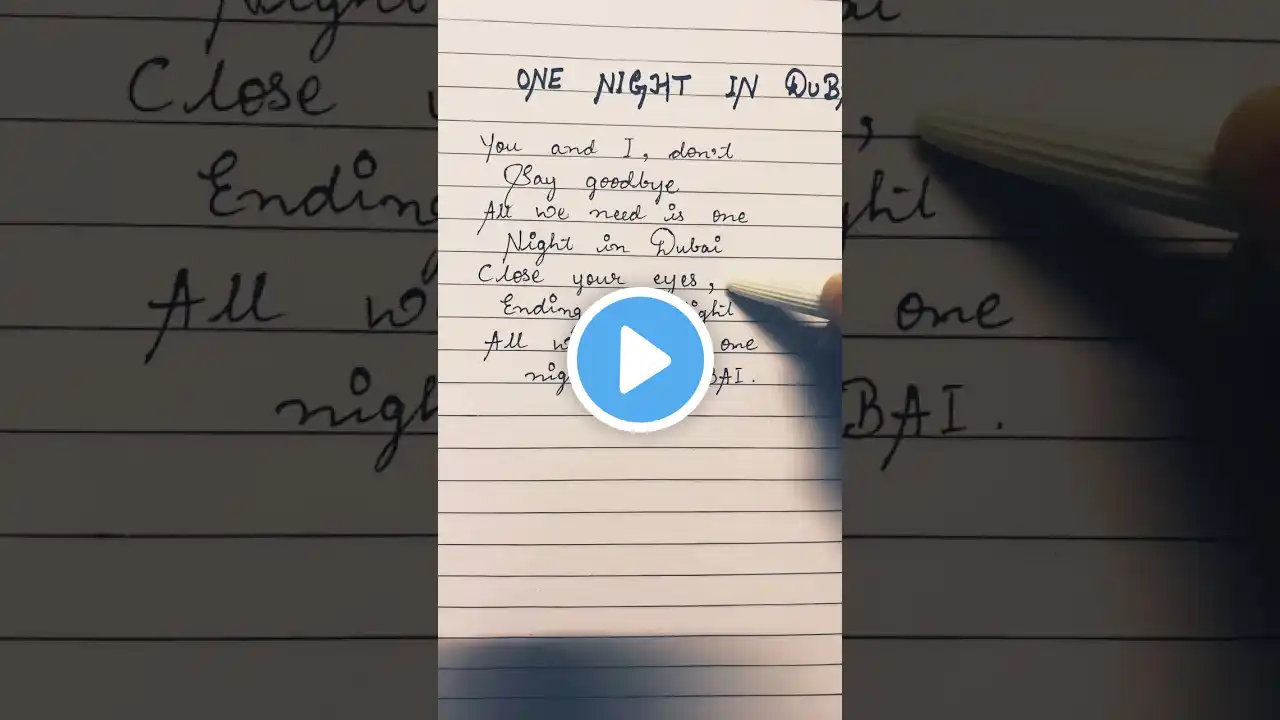 ONE NIGHT IN DUBA
You and I, don't
Say goodbye
All we need is one
Night in Dubai
Close your eyes,
Ending ight
All w one
nig BAI.